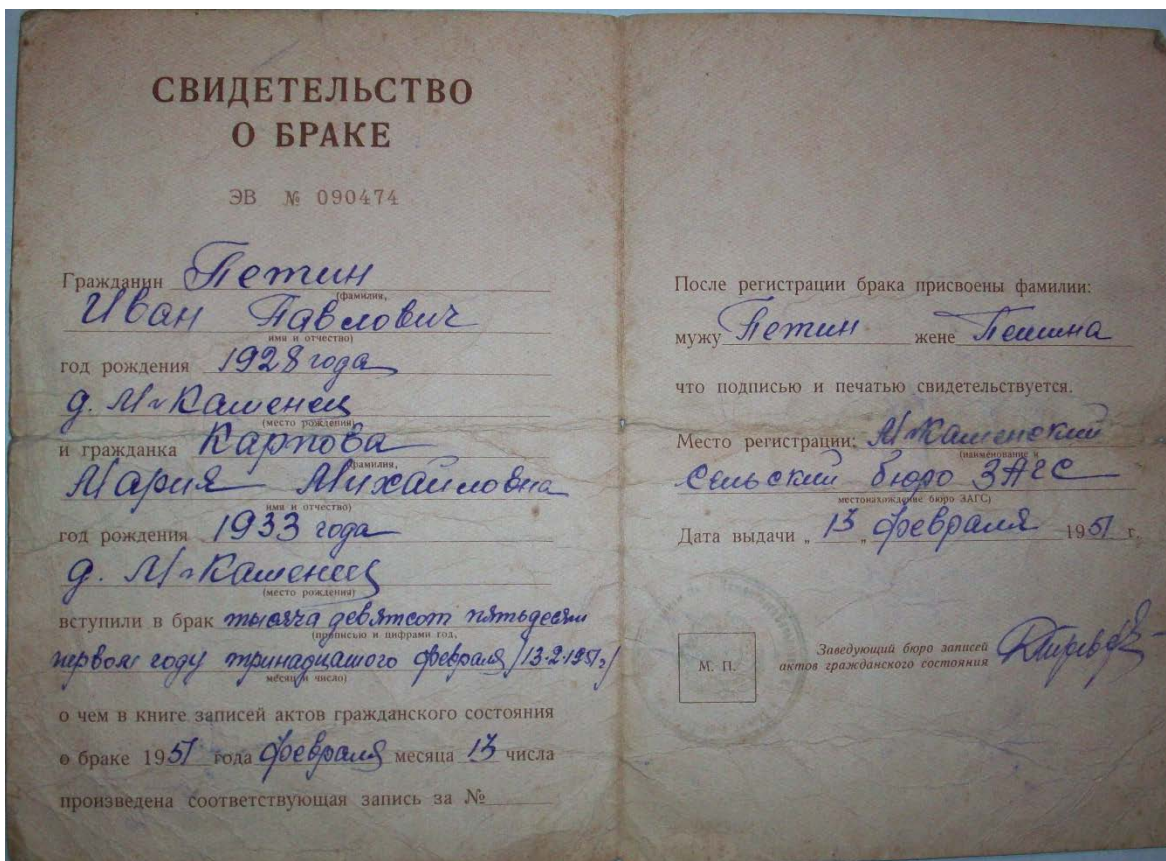 СВИДЕТЕЛЬСТВО
О БРАКЕ
ЭВ № 090474
Гражданин Петин
(фамилия,
Иван Павлович
имя и отчество)
год рождения 1928 года
д. М-Каменец
(место рождения)
и гражданка Карпова
(фамилия,
Мария Михайловна
имя и отчество)
год рождения 1933 года
д. М-Каменец
(место рождения)
вступили в брак тысяча девятсот пятьдесят
(прописью и цифрами год,
первом году тринадцатого февраля /13-2-1951г/
месяц и число)
о чем в книге записей актов гражданского состояния
о браке 1951 года февраля месяца 13 числа
произведена соответствующая запись за №
После регистрации брака присвоены фамилии:
мужу Петин жене Петина
что подписью и печатью свидетельствуется.
Место регистрации: М-Каменский
(наименование и
Сельский бюро ЗАГС
местонахождение бюро ЗАГС)
Дата выдачи „ 13 „ февраля 1951 г.
М. П.
Заведующий бюро записей
актов гражданского состояния